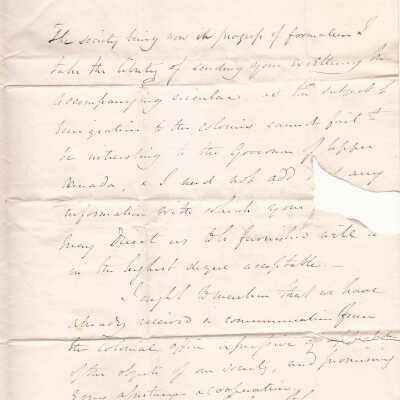 The society being now in progress of formation I
take the liberty of sending your Excellency the
accompanying circular as the subject of
Emigration to the colonies cannot fail to
be interesting to the Governor of Upper
Canada, & I need not add any
information with which your
may direct us to be furnished will be
in the highest degree acceptable. —
I ought to mention that we have
already received a communication from
the colonial office expressive of
of the objects of our society, and promising
assistance & cooperation